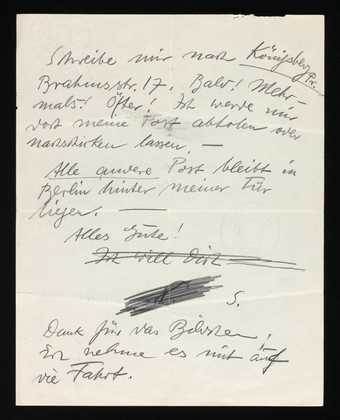 Schreibe mir nach Königsberg Pr.
Brahmsstr. 17. Bald! Mehr-
mals! Öfter! Ich werde mir
dort meine Post abholen oder
nachschicken lassen. —
Alle andere Post bleibt in
Berlin hinter meiner Tür
liegen. —
Alles Gute!
Ich will Dich
S.
Dank für das Bildchen,
Ich nehme es mit auf
die Fahrt.